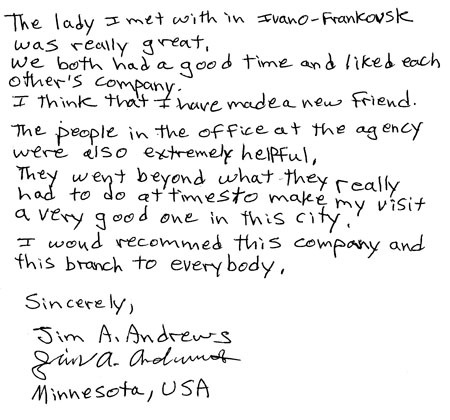 The lady I met with in Ivano-Frankovsk
was really great.
We both had a good time and liked each
other's company.
I think that I have made a new friend.
The people in the office at the agency
were also extremely helpful.
They went beyond what they really
had to do at times to make my visit
a very good one in this city.
I woud recommed this company and
this branch to everybody.
Sincerely,
Jim A. Andrews
Jim A. Andrews
Minnesota, USA